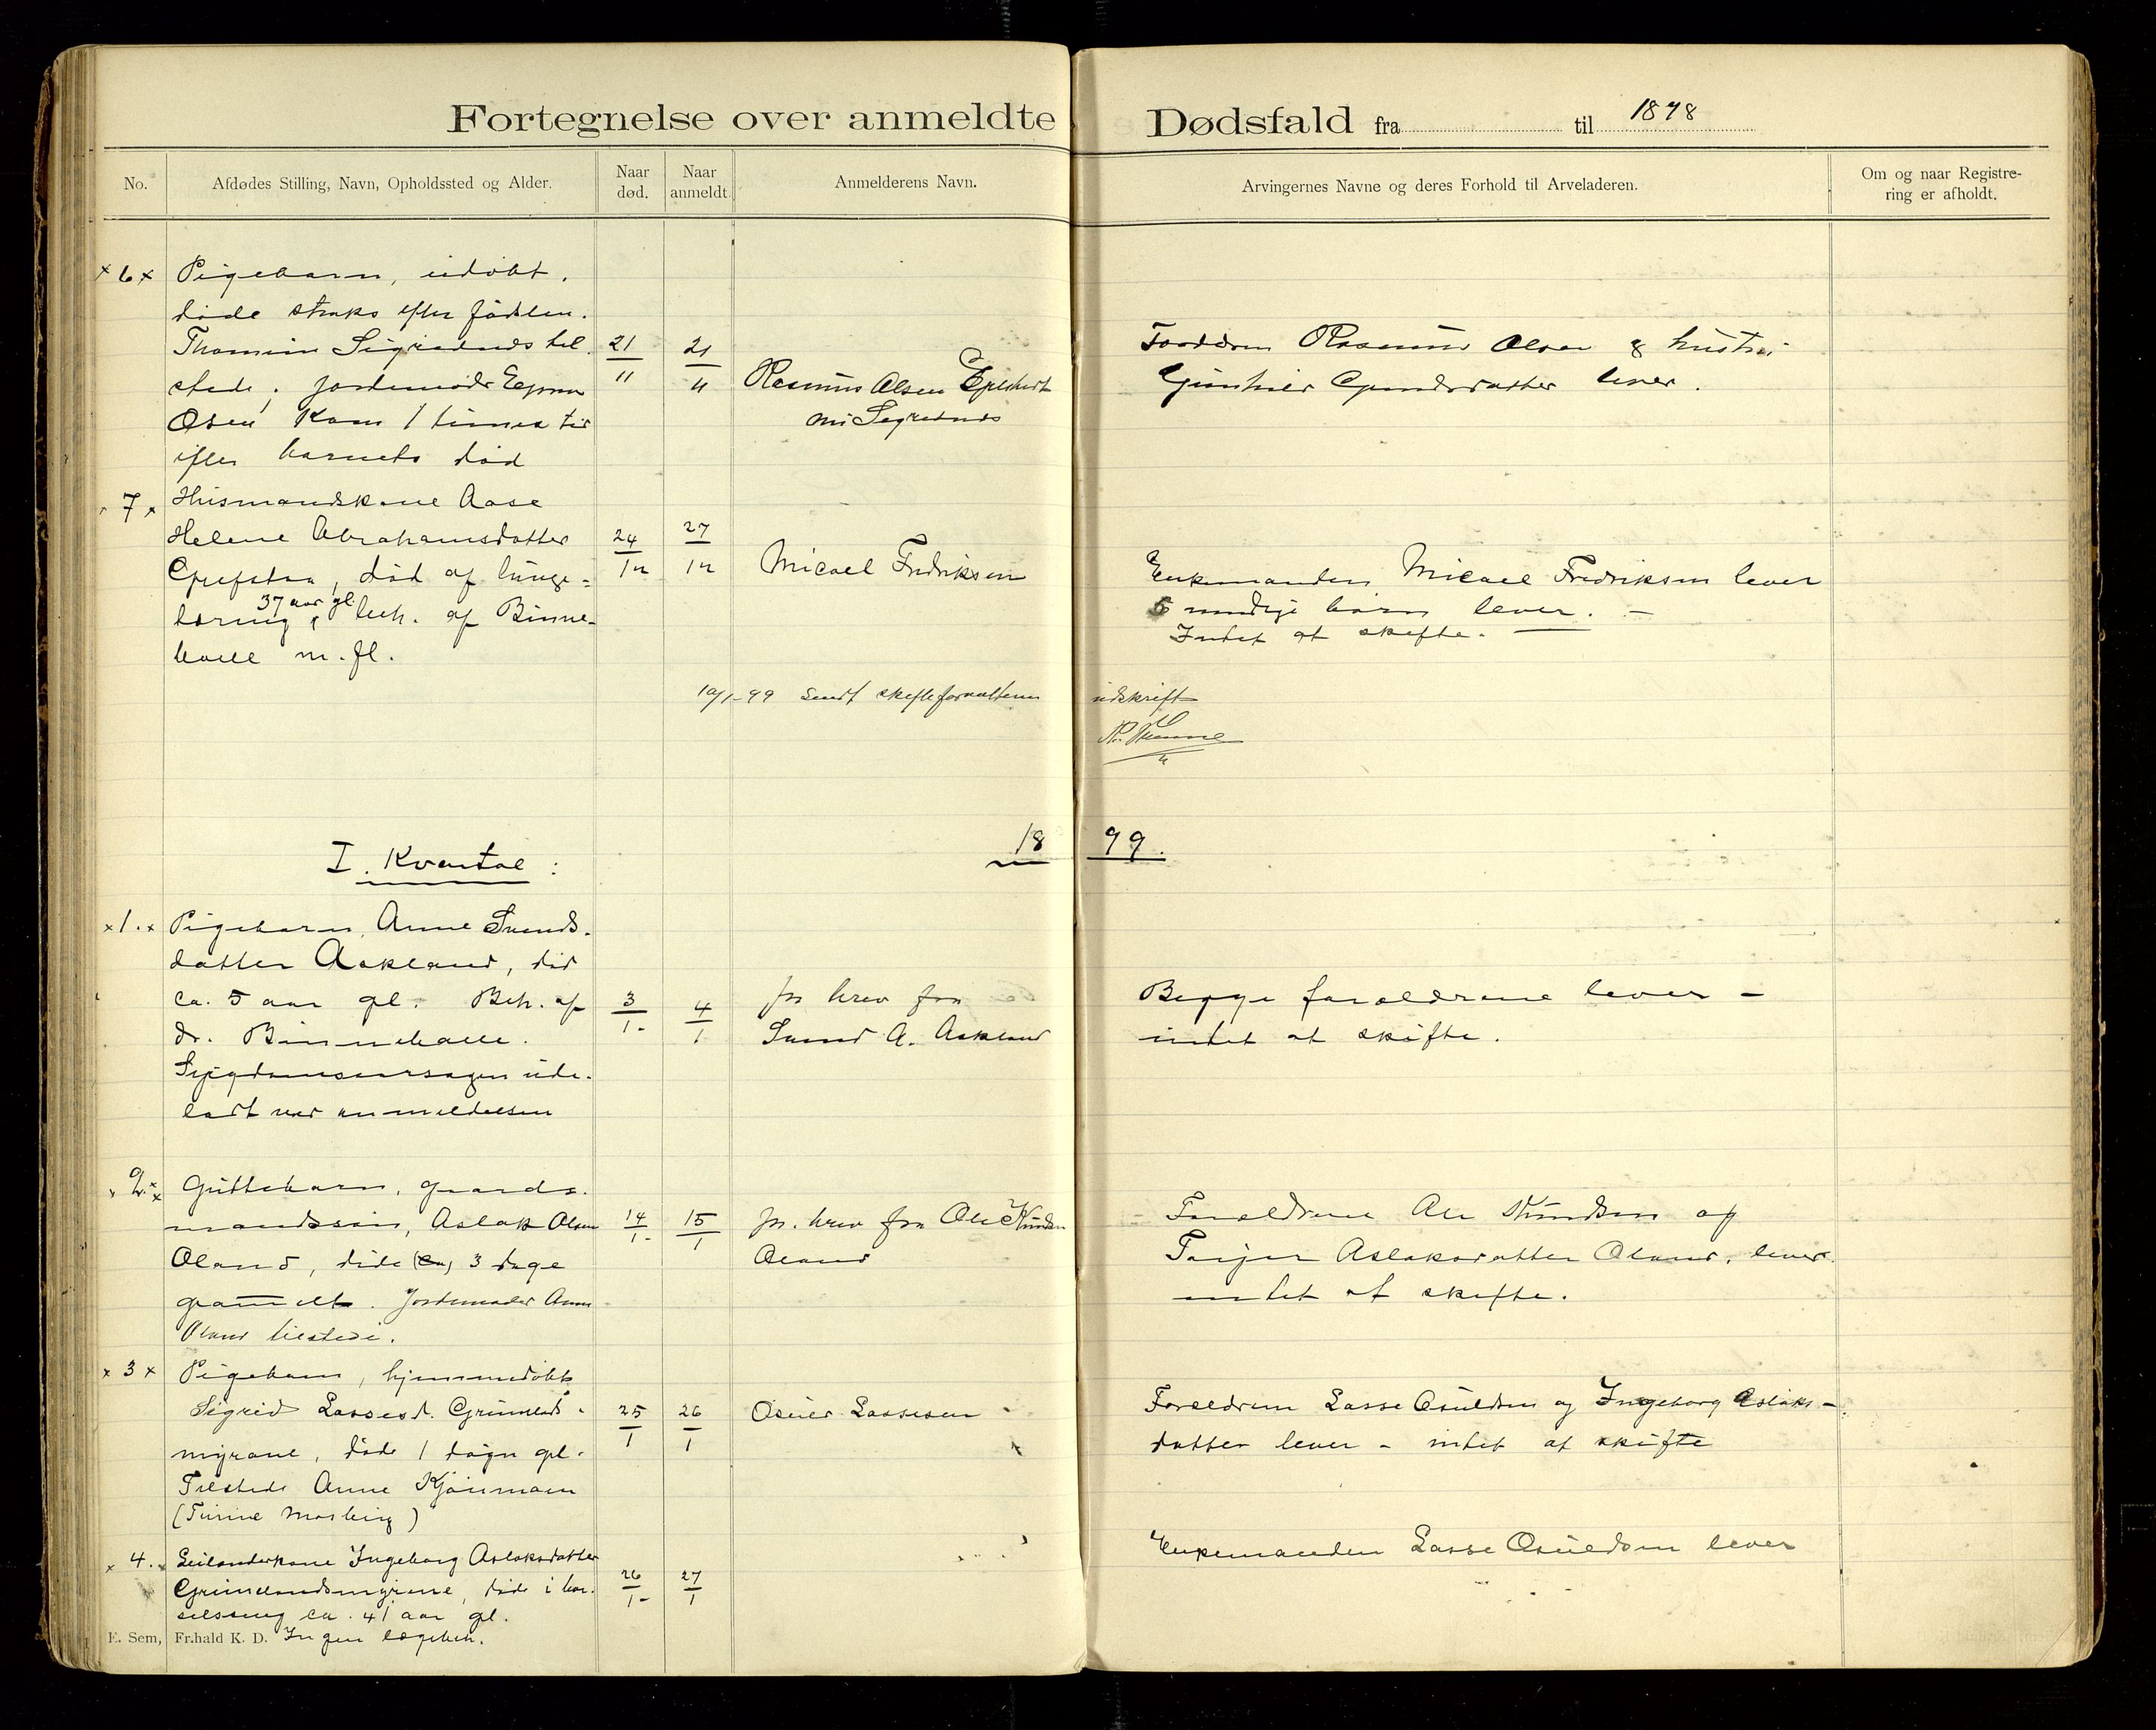 Fortegnelse over anmeldte Dødsfald fra til 1898
No.
Afdødes Stilling, Navn, Opholdssted og Alder.
Naar død.
Naar anmeldt.
Anmelderens Navn.
Arvingernes Navne og deres Forhold til Arveladeren.
Om og naar Registre-
ring er afholdt.
× 6 × Pigebarn, udøbt.
døde straks efter fødslen.
Thomine Sigrednes til
stede; jordemoder
Olsen kom 1 times tid
efter barnets død
21/11
21/11
Rasmus Olsen
Sigrednes
Rasmus Olsen & hustru
lever.
7 × Husmandskone Aase
Helene Abrahamsdatter
Grefstad, død af lunge=
tæring, 37 aar gl. beh. af Binne-
balle m. fl.
24/12
27/12
Micael Fredriksen
Enkemanden Micael Fredriksen lever
5 umdige børn lever. –
Intet at skifte.
10/1-99 sendt skifteforvalteren udskrift
1899.
I. Kvartal:
× 1. × Pigebarn, Anne Svends-
datter Askland, død
ca. 5 aar gl. Beh. af
dr. Binneballe.
Sygdomsaarsagen ude-
ladt ved anmeldelsen
3/1-
4/1
pr brev fra
Svend A. Askland
Begge forældrene lever –
intet at skifte.
2. × Guttebarn, gaards-
mandssøn, Aslak Olsen
Oland, døde (ca) 3 dage
gammelt. Jordemoder Anne
Oland tilstede.
14/1-
15/1
pr. brev fra Ole Knudsen
Oland
Forældrene Ole Knudsen og
Tarjer Aslaksdatter Oland, lever.
intet at skifte.
× 3 × Pigebarn, hjemmedøbt
Sigrid Lassesd. Grimelands-
myrane, døde 1 døgn gl.
Tilstede Anne
25/1
26/1
Osuld Lassesen
Forældrene Lasse Osuldsen og Ingeborg Aslaks-
datter lever – intet at skifte
× 4. Leilenderkone Ingeborg Aslaksdatter
Grimelandsmyrene, døde i bar-
selsseng ca. 41 aar gl.
Ingen lægebeh.
26/1-
27/1
Enkemanden Lasse Osuldsen lever
E. Sem, Fr.hald K. D.